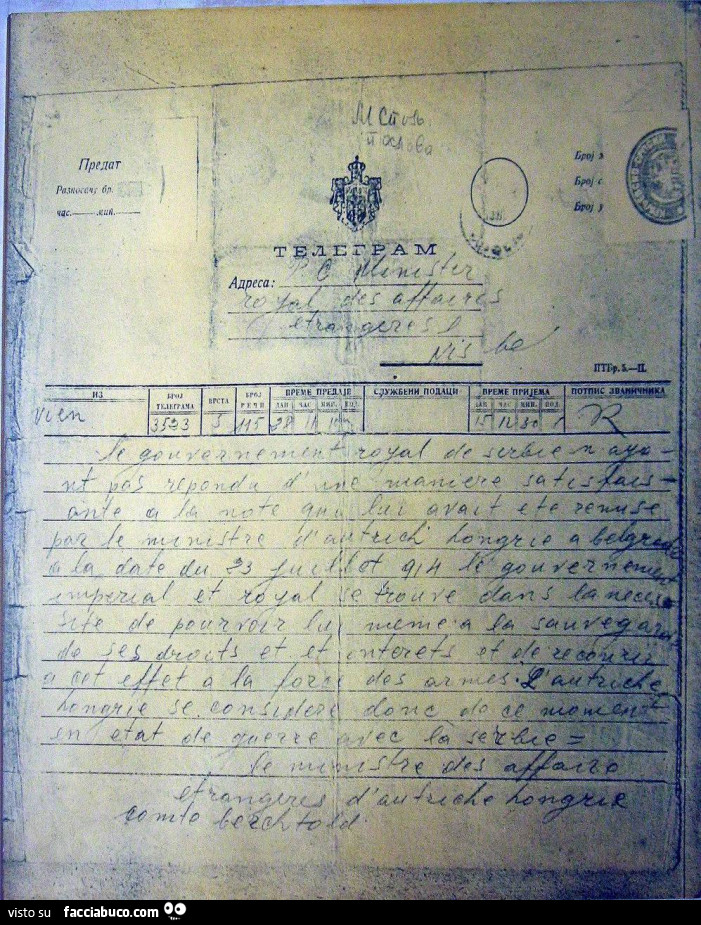 М Спољ.
послова
Предат
Разносачу бр.
час. мин.
Број
Број
Број
ТЕЛЕГРАМ
Адреса: Minister
royal des affaires
etrangeres
Nis
ПТБр. 5.—П.
ИЗ
БРОЈ ТЕЛЕГРАМА
ВРСТА
БРОЈ РЕЧИ
ВРЕМЕ ПРЕДАЈЕ
СЛУЖБЕНИ ПОДАЦИ
ВРЕМЕ ПРИЈЕМА
ПОТПИС ЗВАНИЧНИКА
ДАН ЧАС МИН. ПОД.
ДАН ЧАС МИН. ПОД.
vien 3523 5 115 28 11 15 12 30 R
le gouvernement royal de serbie n ayo-
nt pas repondu d'une maniere satisfais-
ante a la note qui lui avait ete remise
par le ministre d'autrich hongrie a belgrade
a la date du 23 juillet 914 le gouvernement
imperial et royal se trouve dans la neces-
site de pourvoir lui meme a la sauvegarde
de ses droits et et interets et de recourir
a cet effet a la force des armes. L'autriche
hongrie se considere donc de ce moment
en etat de guerre avec la serbie =
le ministre des affaire
etrangeres d'autriche hongrie
comte berchtold
visto su facciabuco.com